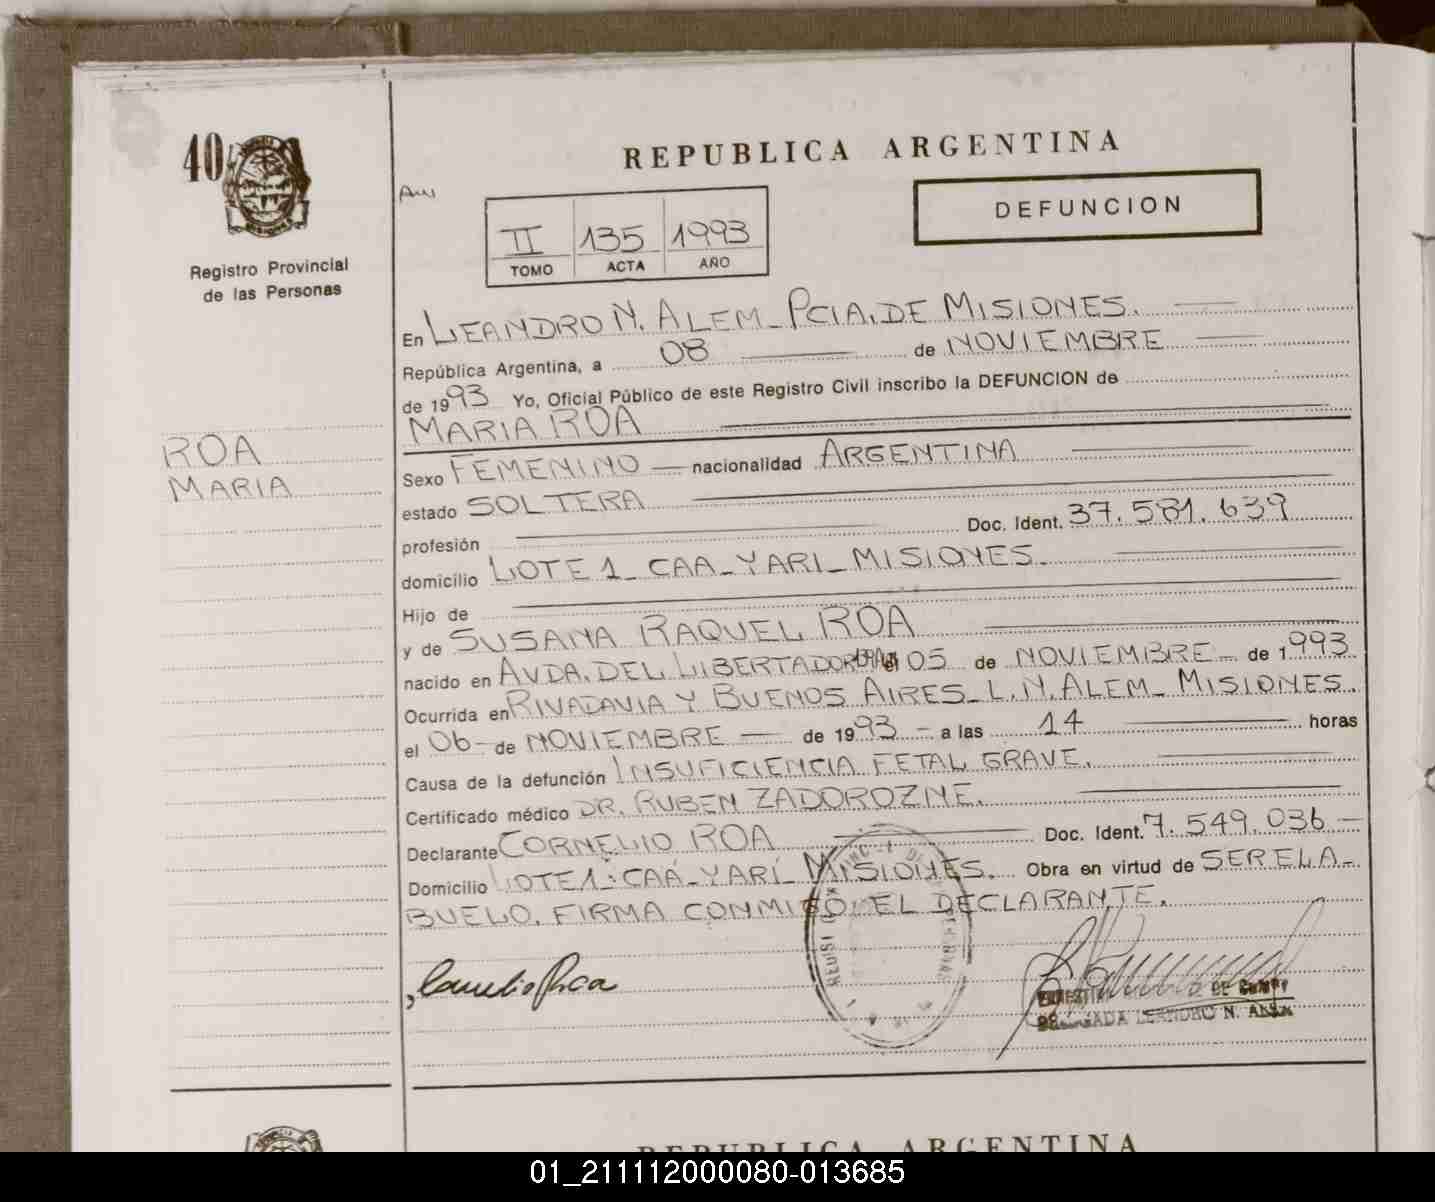 40
Registro Provincial
de las Personas
REPUBLICA ARGENTINA
DEFUNCION
II 135 1993
TOMO ACTA AÑO
En LEANDRO N. ALEM_ PCIA. DE MISIONES.
República Argentina, a 08 de NOVIEMBRE
de 1993 Yo, Oficial Público de este Registro Civil inscribo la DEFUNCION de
MARIA ROA
ROA
MARIA
Sexo FEMENINO nacionalidad ARGENTINA
estado SOLTERA
profesión Doc. Ident. 37.581.639
domicilio LOTE 1_ CAA_YARI_MISIONES.
Hijo de
y de SUSANA RAQUEL ROA
nacido en AVDA. DEL LIBERTADOR el 05 de NOVIEMBRE de 1993
Ocurrida en RIVADAVIA Y BUENOS AIRES_L.N.ALEM_ MISIONES.
el 06 de NOVIEMBRE de 1993 a las 14 horas
Causa de la defunción INSUFICIENCIA FETAL GRAVE.
Certificado médico DR. RUBEN ZADOROZNE.
Declarante CORNELIO ROA Doc. Ident. 7.549.036
Domicilio LOTE 1: CAÁ_YARÍ_ MISIONES. Obra en virtud de SER EL A-
BUELO. FIRMA CONMIGO: EL DECLARANTE.
Cornelio Roa
LEANDRO N. ALEM
REPUBLICA ARGENTINA
01_211112000080-013685